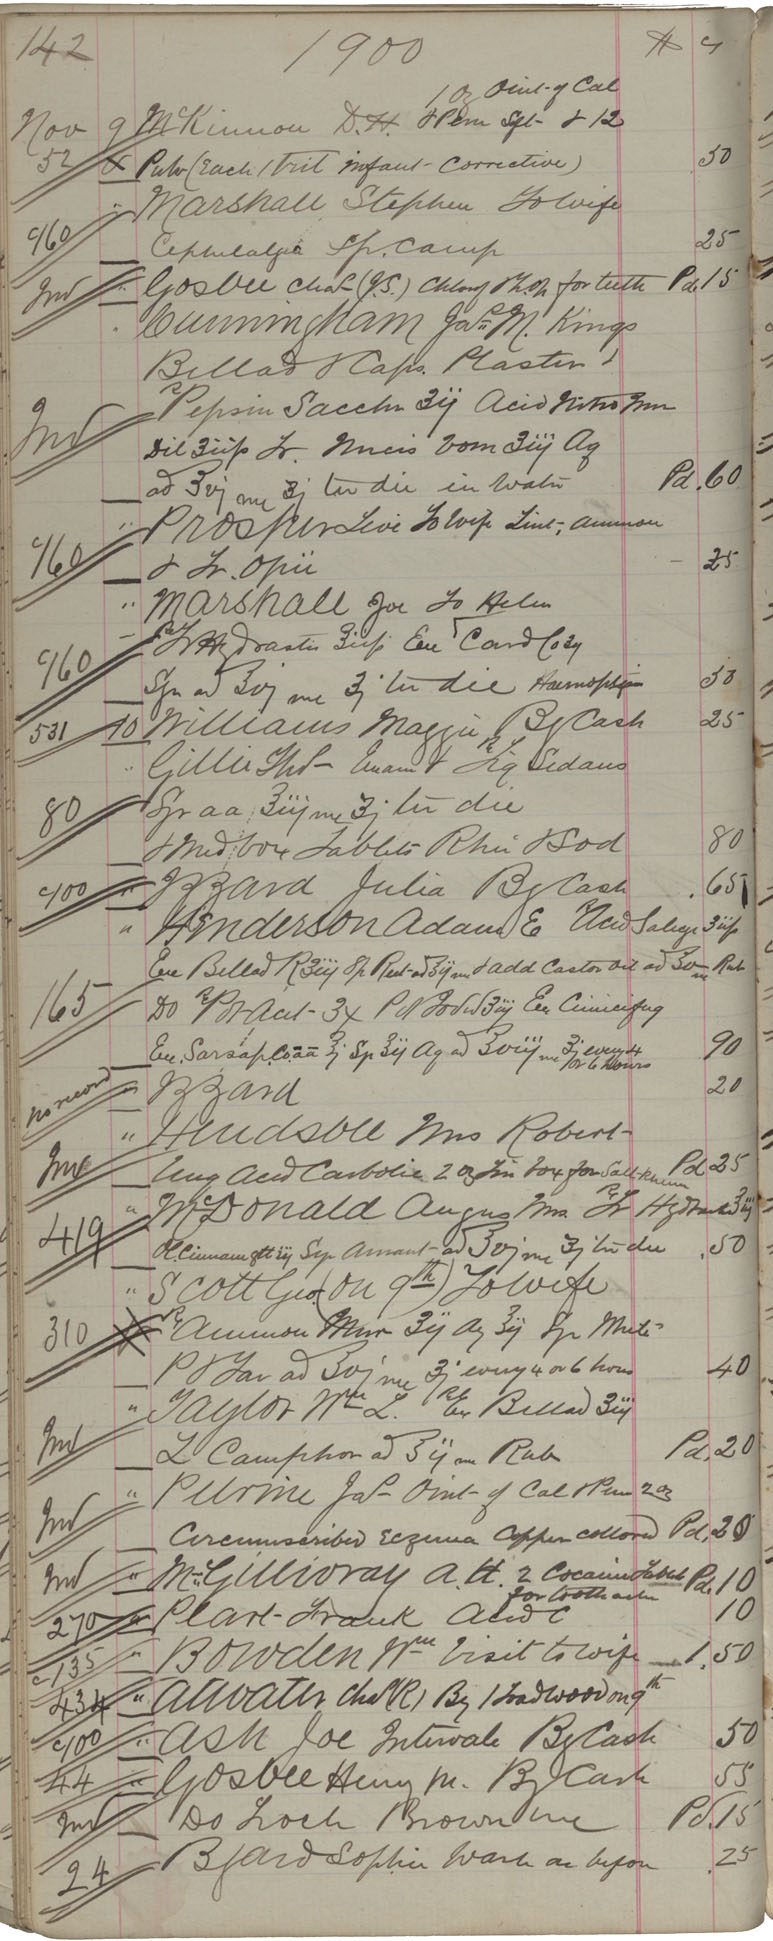 142 1900 $ c
1 oz Oint-of Cal
Nov 9 McKinnon D. H. & Pem Spt- & 12
52 & Pulv (Each 1 trit infant- Corrective) 50
" Marshall Stephen To Wife
c160 Cephalalgia Sp. Camp 25
Ind " Gosbee Chas (J.S.) for teeth Pd. 15
Cunningham Jas M. Kings
Bellad & Caps. Plaster 1
Ind Pepsin Sacchr ʒij Acid Nitro Mur
Dil Tr. Nucis Vom ʒiij Aq
ad ℥vj me ʒj ter die in Water Pd .60
" Prosper Levi To Wife Lint- Ammon
c160 & Tr. Opii 25
" Marshall Joe To Helen
c160 Tr Hydrastis Ext Card Co
Syr ad ℥vj me ʒj ter die 50
531 10 Williams Maggie By Cash 25
" Gillie Exam & Liq Sedans
80 Syr aa ʒiij me ʒj ter die
& Med box Tablets Rhei & Sod 80
c100 " Izzard Julia By Cash .65
" Henderson Adam E Acid Salicy
Ext Bellad R ʒiij Sp Rect- ad me & add Castor Oil ad Rub
165 Do Pot Acet- 3x Pot Iodid ʒiij Ext Cimicifug
Ext. Sarsap. Co aa ℥j Sp ʒij Aq ad ℥viij me ʒj every 4 or 6 hours 90
no record " Izzard 20
" Hendsbee Mrs Robert-
Ind Ung Acid Carbolic 2 oz Tin box for Salt-Rheum Pd 25
" McDonald Angus Mrs. Tr Hydrast ʒiij
419 Ol. Cinnam gtt iij Syr Aurant- ad ℥vj me ʒj ter die .50
" Scott Geo (on 9th) To Wife
310 Ammon Mur ʒij Aq ʒij Syr
P & Tar ad ℥vj me ʒj every 4 or 6 hours 40
" Taylor Wm L. Ext Bellad ʒiij
Ind L Camphor ad ℥ij me Rub Pd. 20
" Purine Jas Oint- of Cal & Pem 2 oz
Ind Circumscribed Eczema Copper collored Pd. 20
Ind " McGillivray A. H. 2 Cocaine Tablets Pd. 10
for toothache
270 " Peart- Frank Acid C 10
c135 " Bowden Wm Visit to wife 1.50
434 " Atwater Chas (R) By 1 Load wood on 9th
c100 " Ash Joe Intervale By Cash 50
44 " Gosbee Henry M. By Cash 55
Ind Do Troch Brown me Pd. 15
24 Byard Sophie Wash as before .25